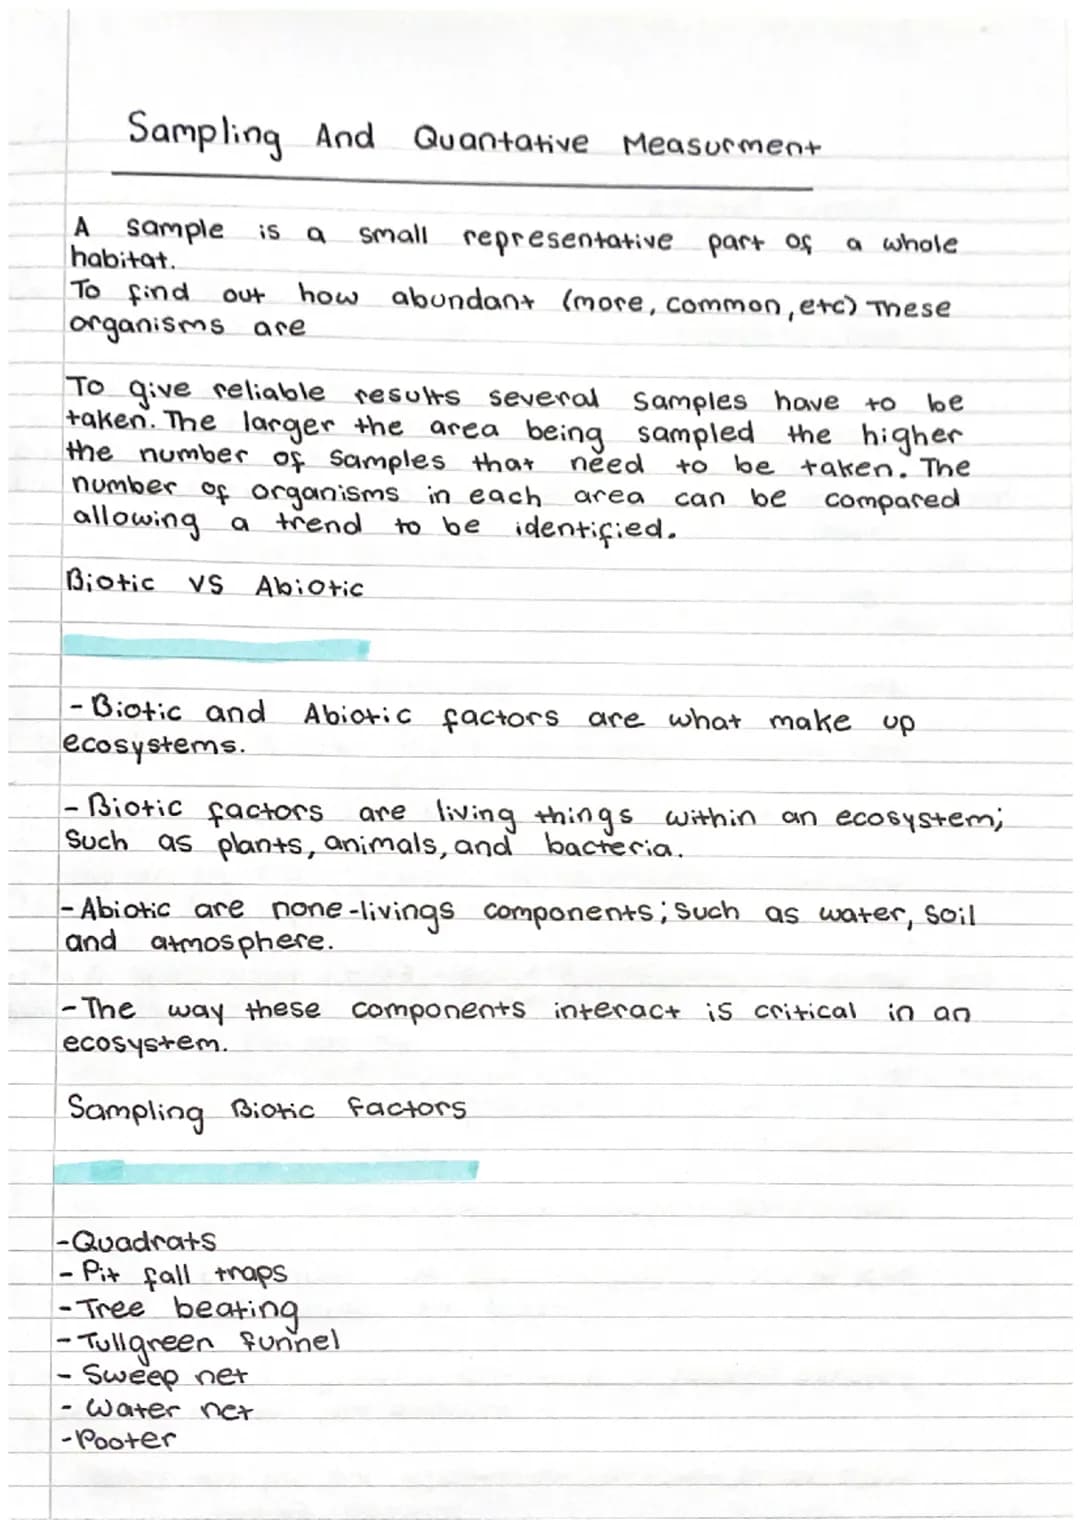 Sampling And Quantative Measurment
A sample is a small representative part of a whole
habitat.
To find out how abundant (more, common, etc) These
organisms are
To give reliable results several samples have to be
taken. The larger the area being sampled the higher
the number of samples that need to be taken. The
number of organisms in each area can be compared
allowing a trend to be identified.
Biotic vs Abiotic
- Biotic and Abiotic factors are what make up
ecosystems.
- Biotic factors are living things within an ecosystem;
Such as plants, animals, and bacteria.
- Abiotic are none-livings components; such as water, soil
and atmosphere.
- The way these components interact is critical in an
ecosystem.
Sampling Biotic factors
- Quadrats
- Pit fall traps
- Tree beating
- Tullgreen funnel
- Sweep net
- Water net
- Pooter